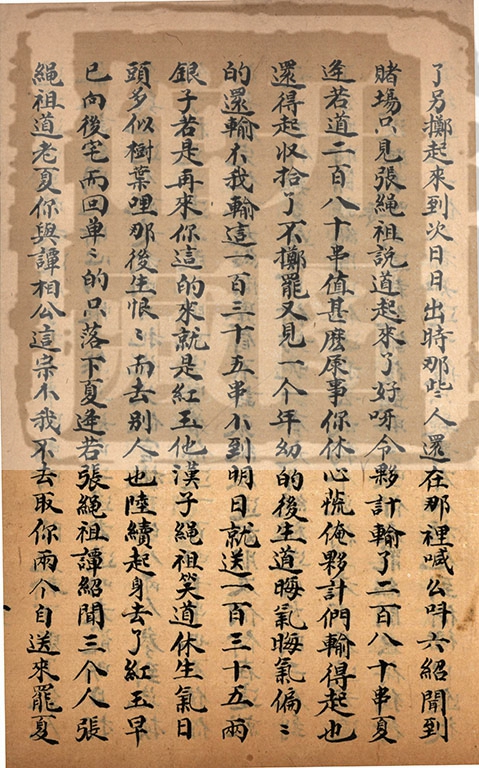 了另擲起來到次日日出時那些人還在那裡喊公呌六紹聞到
賭場只見張繩祖說道起來了好呀令夥計輸了二百八十串夏
逢若道二百八十串值甚麽原事你休心慌俺夥計們輸得起也
還得起收拾了不擲罷又見一个年幼的後生道晦氣晦氣偏〻
的還輸不我輸這一百三十五串小到明日就送一百三十五兩
銀子若是再來你這的來就是紅玉他漢子繩祖笑道休生氣日
頭多似樹葉哩那後生恨〻而去別人也陸續起身去了紅玉早
已向後宅而回单〻的只落下夏逢若張繩祖譚紹聞三个人張
繩祖道老夏你與譚相公這宗小我不去取你兩个自送來罷夏